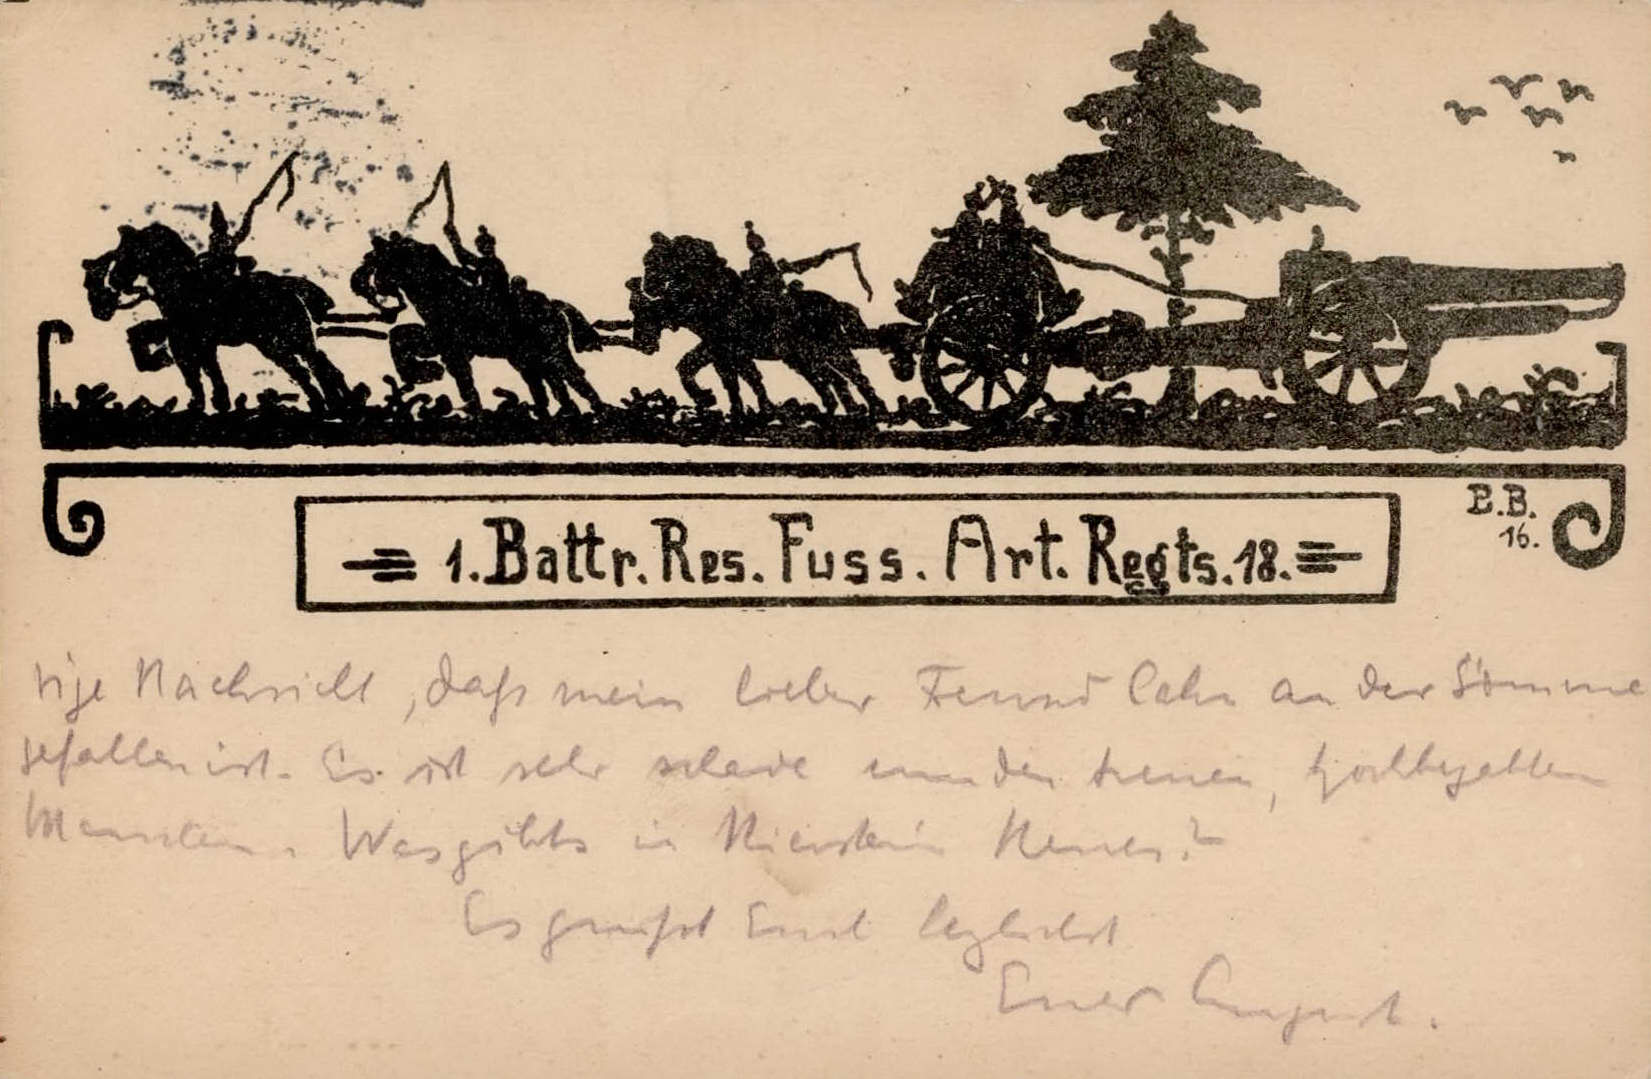 1. Battr. Res. Fuss. Art. Regts. 18.
B.B.
16.
rige Nachricht, daß mein lieber Freund Cahn an der Somme
gefallen ist. Es ist sehr schade um den treuen, hochbegabten
Menschen. Was gibts in Nierstein Neues?
Es grüßt Euch herzlichst
Euer August.